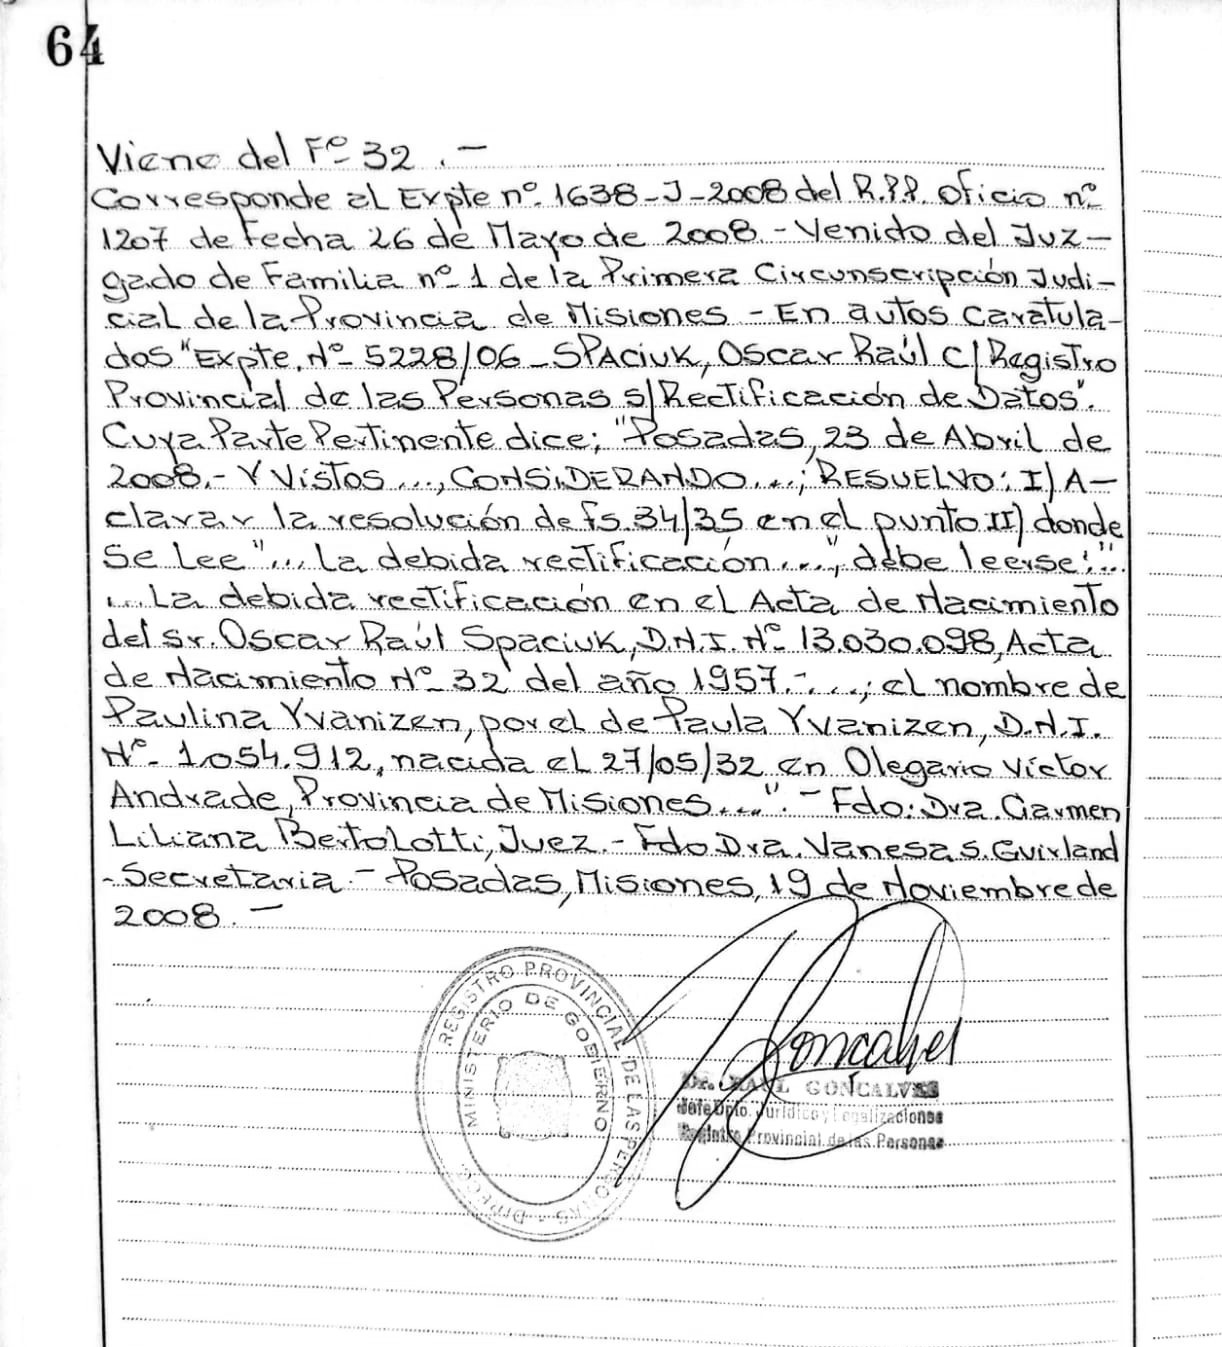 64
Viene del Fº 32 .-
Corresponde al Expte nº 1638-J-2008 del R.P.P. Oficio nº
1207 de Fecha 26 de Mayo de 2008.- Venido del Juz-
gado de Familia nº 1 de la Primera Circunscripción Judi-
cial de la Provincia de Misiones - En autos caratula-
dos "Expte. Nº 5228/06 - SPACIUK, Oscar Raúl C/ Registro
Provincial de las Personas s/ Rectificación de Datos".
Cuya Parte Pertinente dice; "Posadas, 23 de Abril de
2008.- Y Vistos ..., CONSIDERANDO...; RESUELVO: I) A-
clarar la resolución de fs. 34/35 en el punto II) donde
se lee "... la debida rectificación ...", debe leerse: "..
... La debida rectificación en el Acta de Nacimiento
del sr. Oscar Raúl Spaciuk, D.N.I. Nº 13.030.098, Acta
de Nacimiento Nº 32 del año 1957.-...; el nombre de
Paulina Yvanizen, por el de Paula Yvanizen, D.N.I.
Nº 1.054.912, nacida el 27/05/32 en Olegario Víctor
Andrade, Provincia de Misiones...".- Fdo: Dra. Carmen
Liliana Bertolotti, Juez.- Fdo Dra. Vanesa S. Guirland
- Secretaria.- Posadas, Misiones, 19 de Noviembre de
2008.-
REGISTRO PROVINCIAL DE LAS PERSONAS
MINISTERIO DE GOBIERNO
Gonçalves
Dr. RAUL GONÇALVES
Jefe Dpto. Jurídico y Legalizaciones
Registro Provincial de las Personas